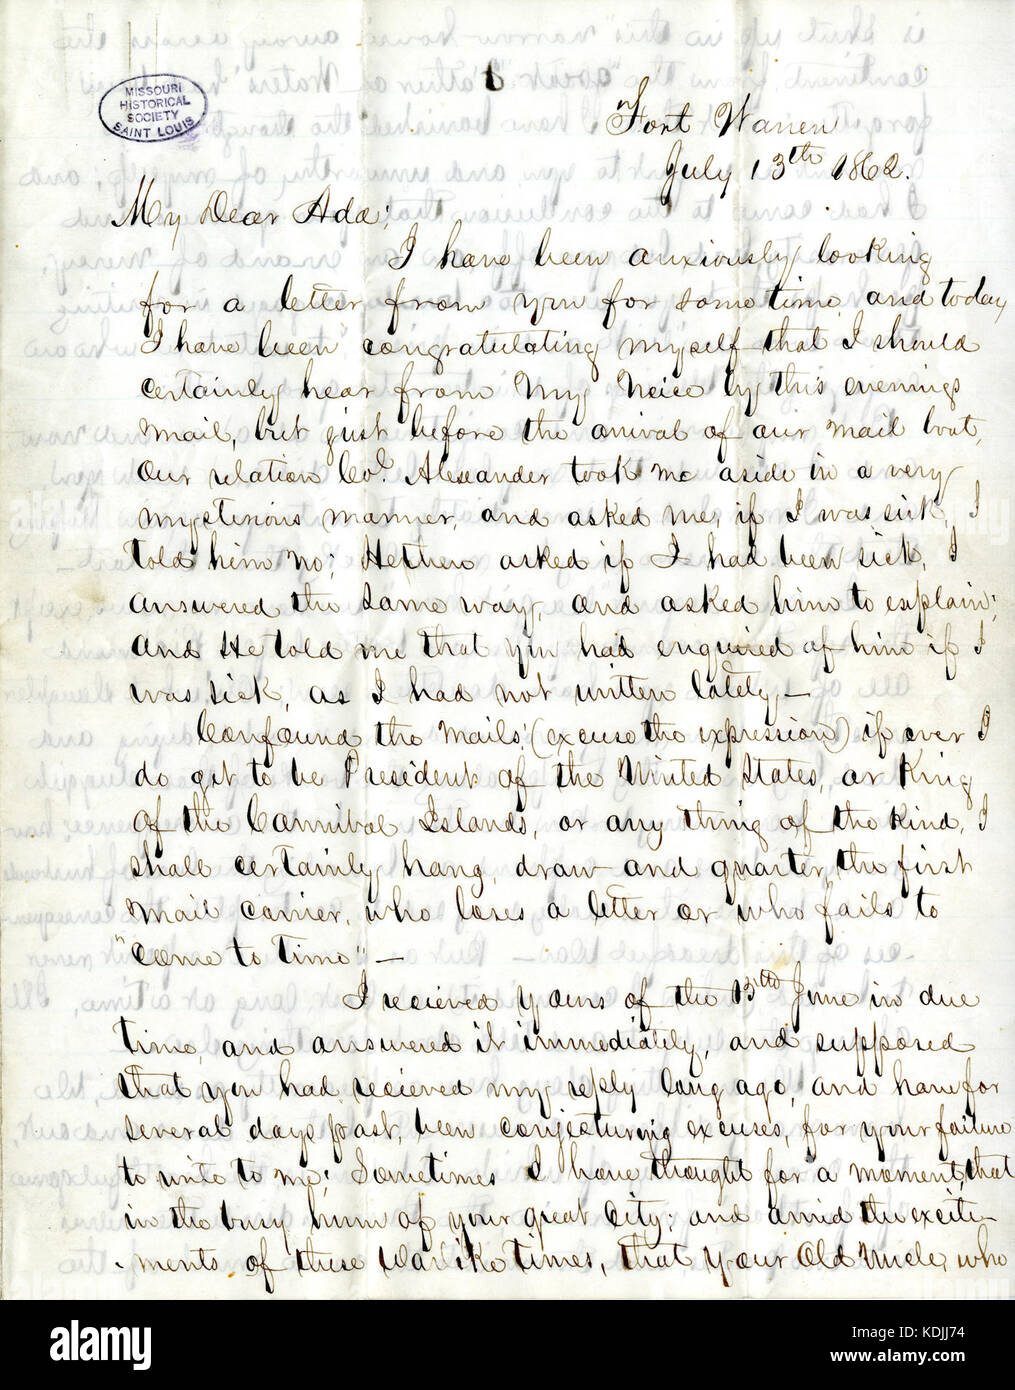 MISSOURI
HISTORICAL
SOCIETY
SAINT LOUIS
Fort Warren
July 13th 1862.
My Dear Ada:
I have been anxiously looking
for a letter from you for some time, and today
I have been congratulating myself that I should
certainly hear from my Neice by this evenings
mail, but just before the arrival of our mail boat,
our relation Col. Alexander took me aside in a very
mysterious manner, and asked me, if I was sick, I
told him no; He then asked if I had been sick, I
answered the same way, and asked him to explain;
and He told me that you had enquired of him if I
was sick, as I had not written lately,—
Confound the mails! (excuse the expression) if ever I
do get to be President of the United States, or King
of the Cannibal Islands, or any thing of the kind, I
shall certainly hang, draw and quarter, the first
mail carrier, who loses a letter or who fails to
"come to time":—
I recieved yours of the 13th June in due
time, and answered it immediately, and supposed
that you had recieved my reply long ago, and have for
several days past, been conjecturing excuses, for your failure
to write to me; Sometimes I have thought for a moment, that
in the busy hum of your great city; and amid the excite-
-ments of these Warlike times, that your Old Uncle, who
alamy
Image ID: KDJJ74
www.alamy.com